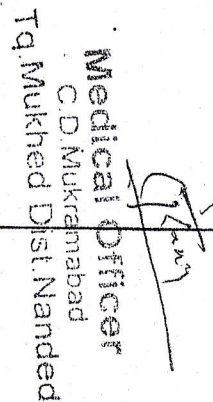 Medical Officer
C.D.Mukramabad
Tq.Mukhed Dist.Nanded